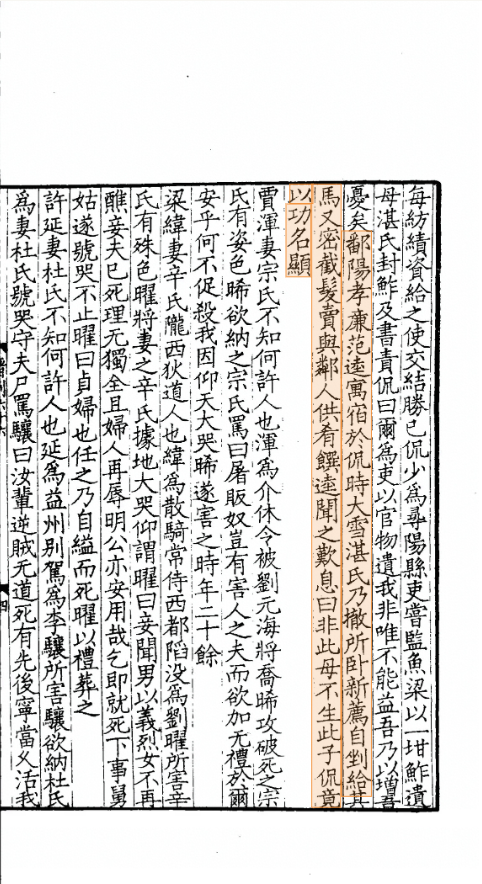 每紡績資給之使交結勝己侃少為尋陽縣吏嘗監魚梁以一坩鮓遺
母湛氏封鮓及書責侃曰爾為吏以官物遺我非唯不能益吾乃以增吾
憂矣鄱陽孝廉范逵寓宿於侃時大雪湛氏乃撤所卧新薦自剉給其
馬又密截髮賣與鄰人供肴饌逵聞之歎息曰非此母不生此子侃竟
以功名顯
賈渾妻宗氏不知何許人也渾為介休令被劉元海將喬晞攻破死之宗
氏有姿色晞欲納之宗氏罵曰屠販奴豈有害人之夫而欲加无禮於爾
安乎何不促殺我因仰天大哭晞遂害之時年二十餘
梁緯妻辛氏隴西狄道人也緯為散騎常侍西都陷没為劉曜所害辛
氏有殊色曜將妻之辛氏據地大哭仰謂曜曰妾聞男以義烈女不再
醮妾夫已死理无獨全且婦人再辱明公亦安用哉乞即就死下事舅
姑遂號哭不止曜曰貞婦也任之乃自縊而死曜以禮葬之
許延妻杜氏不知何許人也延為益州別駕為李驤所害驤欲納杜氏
為妻杜氏號哭守夫尸罵驤曰汝輩逆賊无道死有先後寧當久活我
四